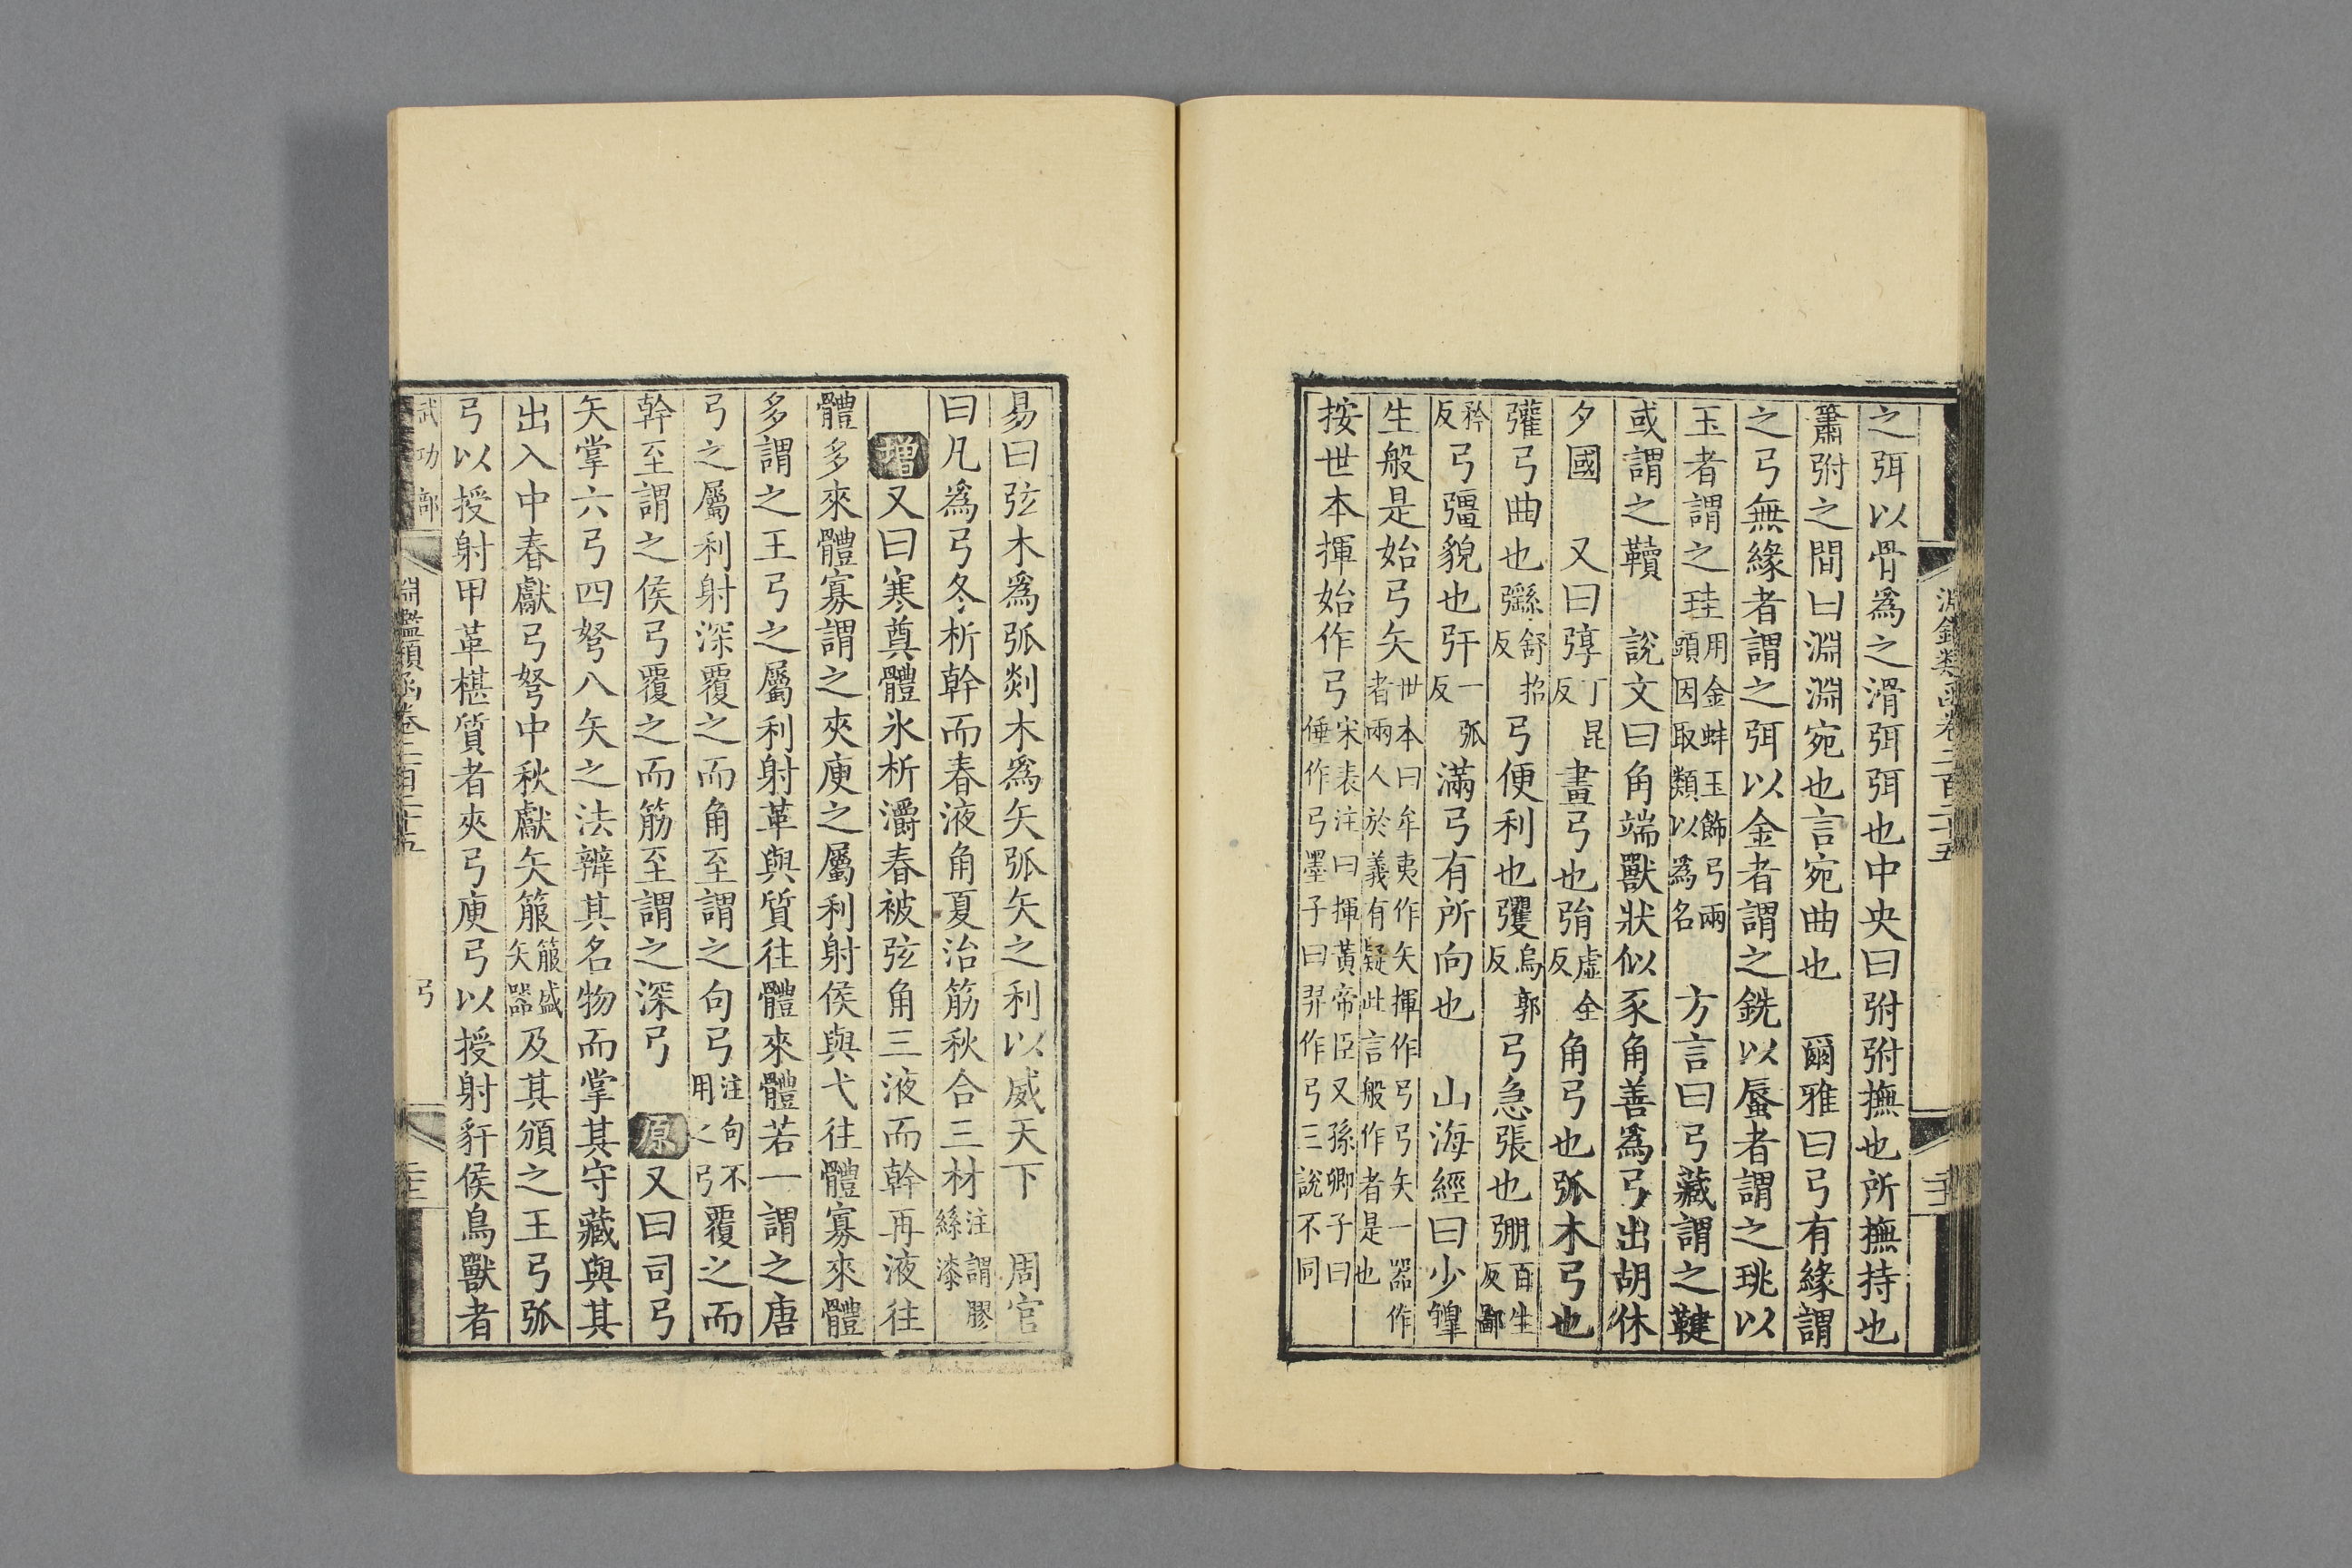 之弭以骨爲之滑弭弭也中央曰弣弣撫也所撫持也
簫弣之間曰淵淵宛也言宛曲也　爾雅曰弓有緣謂
之弓無緣者謂之弭以金者謂之銑以蜃者謂之珧以
玉者謂之珪用金蚌玉飾弓兩頭因取類以爲名　方言曰弓藏謂之鞬
或謂之韥　說文曰角端獸狀似豕角善爲弓出胡休
夕國　又曰弴丁昆反畫弓也弲虛全反角弓也弧木弓也
彏弓曲也弨舒招反弓便利也彏烏郭反弓急張也弸百生反鄙
矜反弓彊貌也弙一弧反滿弓有所向也　山海經曰少皥
生般是始弓矢世本曰牟夷作矢揮作弓弓矢一器作者兩人於義有疑此言般作者是也
按世本揮始作弓宋衷注曰揮黃帝臣又孫卿子曰倕作弓墨子曰羿作弓三說不同
易曰弦木爲弧剡木爲矢弧矢之利以威天下　周官
曰凡爲弓冬析幹而春液角夏治筋秋合三材注謂膠絲漆
增又曰寒奠體氷析灂春被弦角三液而幹再液往
體多來體寡謂之夾庾之屬利射侯與弋往體寡來體
多謂之王弓之屬利射革與質往體來體若一謂之唐
弓之屬利射深覆之而角至謂之句弓注句不用之弓覆之而
幹至謂之侯弓覆之而筋至謂之深弓　原又曰司弓
矢掌六弓四弩八矢之法辨其名物而掌其守藏與其
出入中春獻弓弩中秋獻矢箙箙盛矢器及其頒之王弓弧
弓以授射甲革椹質者夾弓庾弓以授射豻侯鳥獸者
武功部　淵鑑類函卷二百二十五　弓